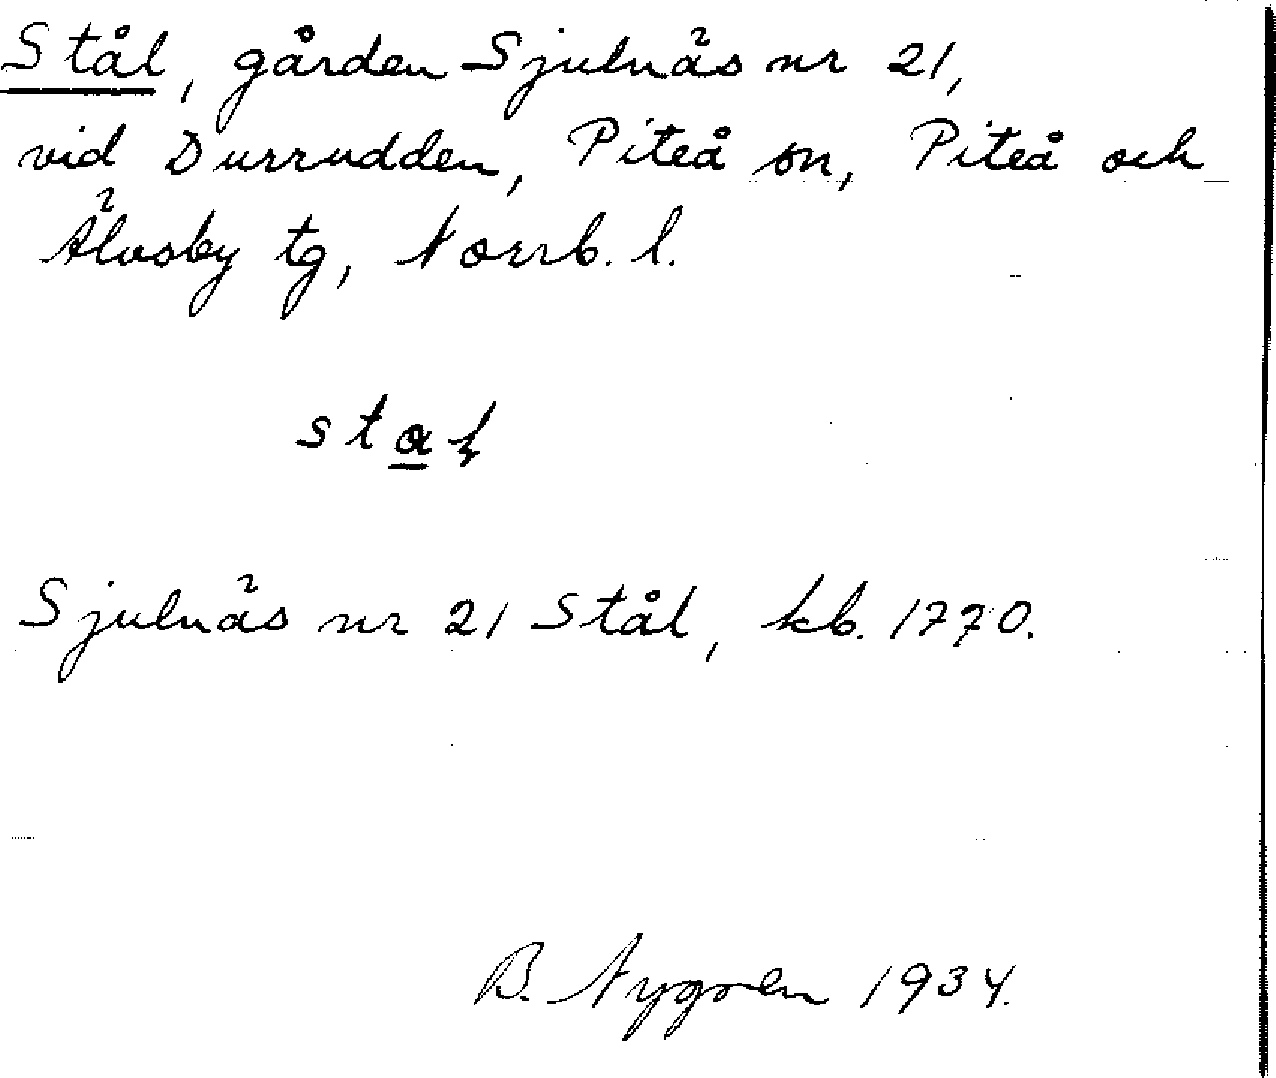 Stål, gården Sjulnäs nr 21,
vid Durrudden, Piteå sn, Piteå och
Älvsby tg, Norrb. l.
Sjulnäs nr 21 Stål, kb. 1770.
B. Nygren 1934.